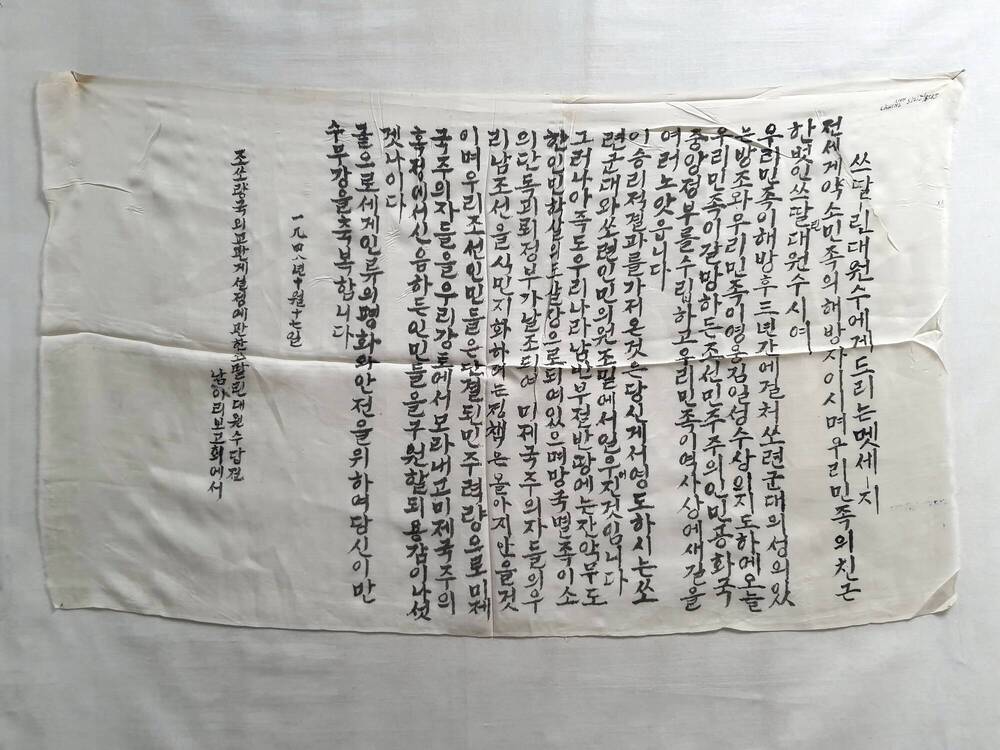 쓰딸린대원수에게드리는멧세-지
전세게약소민족의해방자이시며우리민족의친근
한벗인쓰딸린대원수시여
우리민족이해방후三년간에걸처쏘련군대의성의있
는방조와우리민족이영웅김일성수상의지도하에오늘
우리민족이갈망하든조선민주주의인민공화국
중앙정부를수립하고우리민족이역사상에새길을
여러노앗읍니다
이승리적결과를가저온것은당신게서영도하시는쏘
련군대와쏘련인민의원조밑에서일우워진것입니다
그러나아즉도우리나라남반부절반땅에는잔악무도
한인민학살의도살장으로되여있으며망국멸족이소
의단독괴뢰정부가날조되여미제국주의자들의우
리남조선을식민지화하려는정책은몰아지안을것
이며우리조선인민들은단결된민주력량으로미제
국주의자들을우리강토에서모라내고미제국주의
혹정에서신음하든인민들을구원합되용감이나섯
겟나이다
끝으로세게인류의평화와안전을위하여당신이만
수무강을축복합니다
一九四八년十월十七일
조쏘량국외교관게설정에관한쓰딸린대원수답전
남아리보고회에서